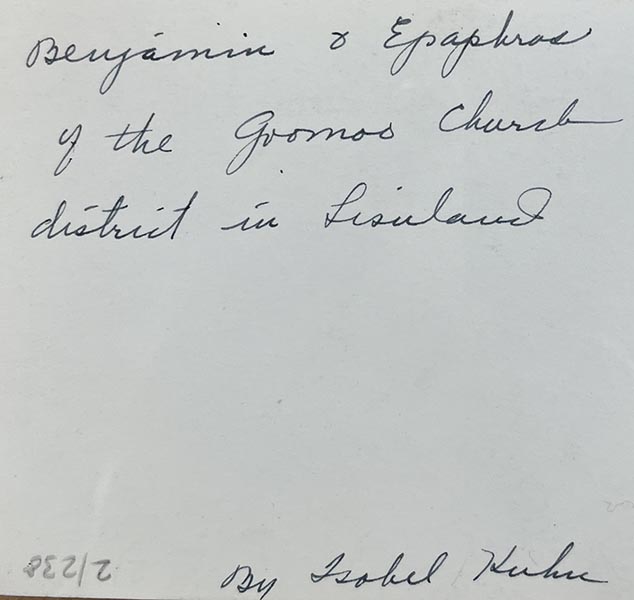 Benjamin & Epaphras
of the Goomoo Church
district in Lisuland
By Isobel Kuhn
2/238